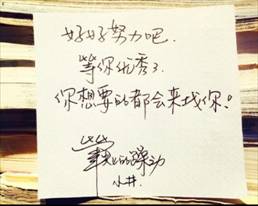 好好努力吧
等你优秀了
你想要的都会来找你!
的躁动
小井.